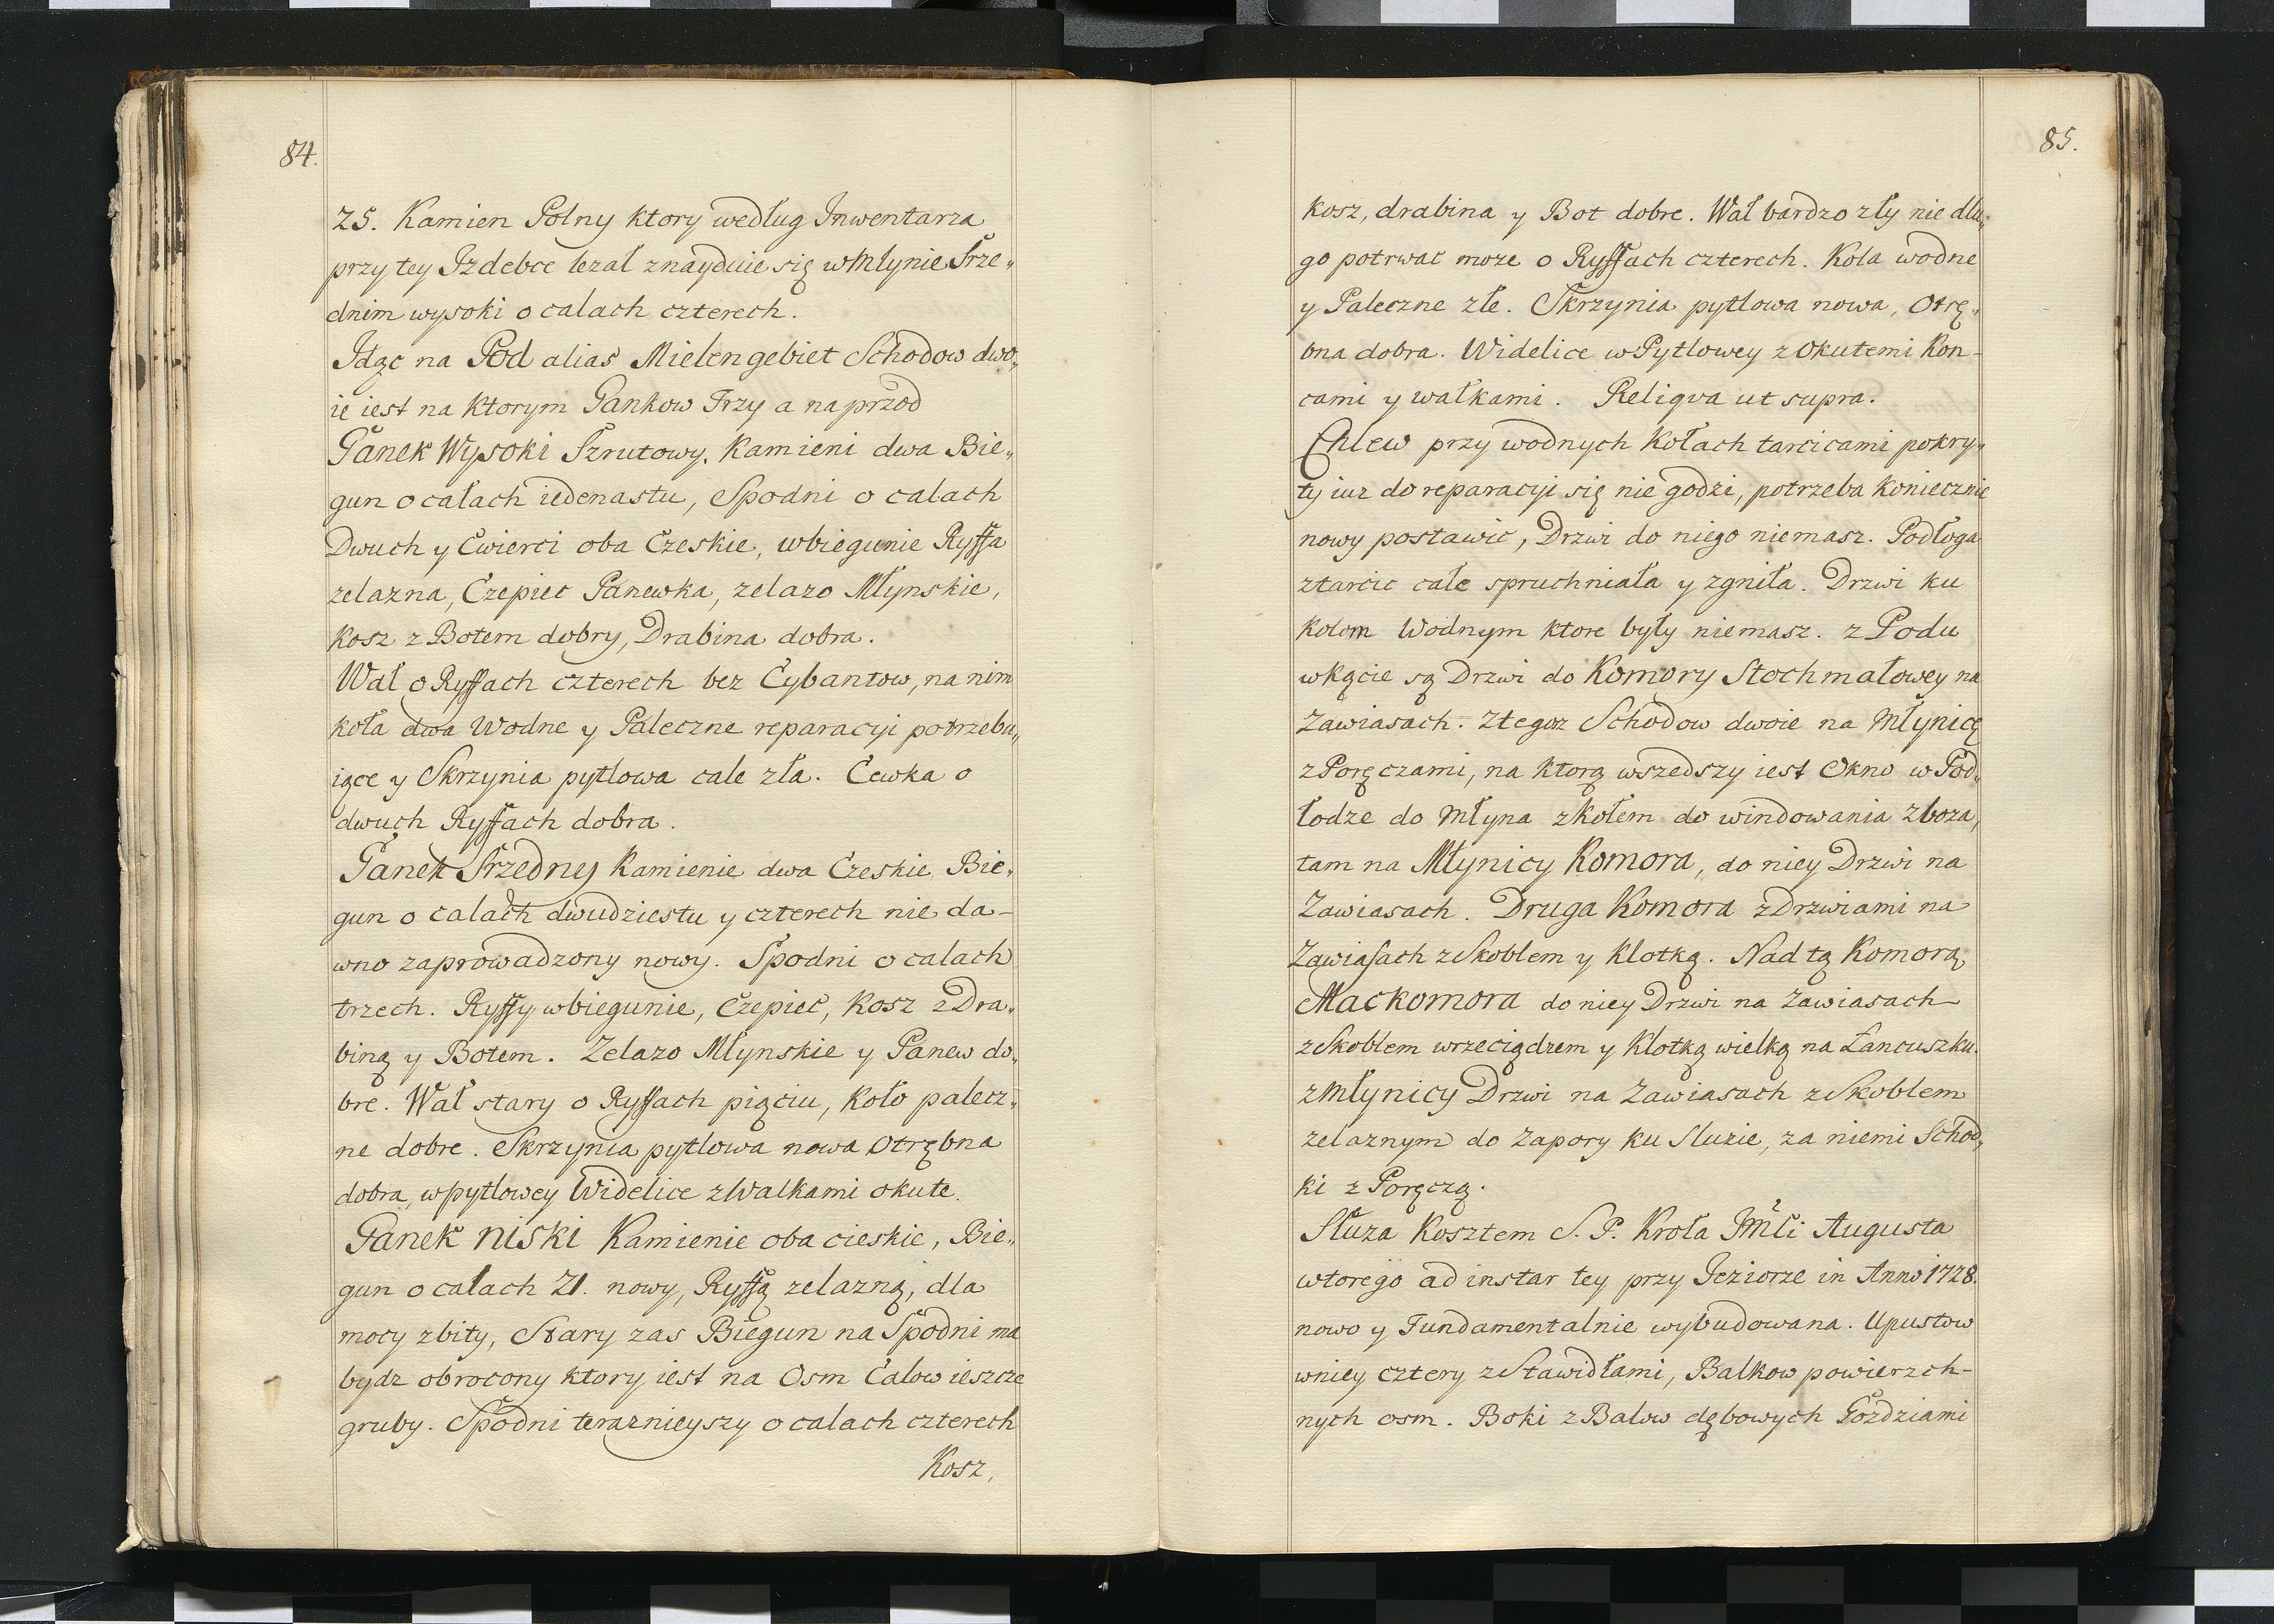 84.
25. Kamien Polny ktory według Inwentarza
przy tey Izdebce lezał znayduie się w Młynie Srze„
dnim wysoki o calach czterech.
Idąc na Pod alias Mielengebiet Schodow dwo„
ie iest na ktorym Gankow Trzy a naprzod
Ganek Wysoki Szrutowy. Kamieni dwa Bie„
gun o calach iedenastu, Spodni o calach
Dwuch y Cwierci oba Czeskie, wbiegunie Ryffa
zelazna, Czepiec Panewka, zelazo Młynskie,
kosz z Botem dobry, Drabina dobra.
Wał o Ryffach czterech bez Cybantow, na nim
koła dwa Wodne y Paleczne reparacyi potrzebu„
iące y Skrzynia pytlowa cale zła. Cewka o
dwuch Ryffach dobra.
Ganek Srzedny Kamienie dwa Czeskie Bie„
gun o calach dwudziestu y czterech nie da-
wno zaprowadzony nowy. Spodni o calach
trzech. Ryffy wbiegunie, Czepiec, Kosz z Dra„
biną y Botem. Zelazo Młynskie y Panew do„
bre. Wał stary o Ryffach piąciu, Koło palecz„
ne dobre. Skrzynia pytlowa nowa Otrębna
dobra, wpytlowey Widelice z Walkami okute.
Ganek niski Kamienie oba cieskie, Bie„
gun o calach 21. nowy, Ryffą zelazną, dla
mocy zbity, Stary zas Biegun na Spodni ma
bydz obrocony ktory iest na Osm Calow ieszcze
gruby. Spodni teraznieyszy o calach czterech
Kosz,
85.
kosz, drabina y Bot dobre. Wał bardzo zły nie dłu„
go potrwac moze o Ryffach czterech. Koła wodne
y Paleczne złe. Skrzynia pytlowa nowa, Otrę„
bna dobra. Widelice w Pytlowey z Okutemi Kon-
cami y wałkami. Reliqva ut supra.
Chlew przy wodnych Kołach tarcicami pokry„
ty iuz do reparacyi się nie godzi, potrzeba koniecznie
nowy postawic, Drzwi do niego niemasz. Podłoga
ztarcic cale spruchniała y zgniła. Drzwi ku
kolom Wodnym ktore były niemasz. z Podu
wkącie są Drzwi do Komory Stochmałowey na
Zawiasach. Ztegoz Schodow dwoie na Młynicę
z Poręczami, na ktorą wszedszy iest Okno w Pod„
łodze do Młyna zkołem do windowania Zboza,
tam na Młynicy Komora, do niey Drzwi na
Zawiasach. Druga Komora zDrzwiami na
Zawiasach zSkoblem y Klotką. Nad tą Komorą
Mackomora do niey Drzwi na Zawiasach
zSkoblem wrzeciądzem y Klotką wielką na Łancuszku.
z Młynicy Drzwi na Zawiasach z Skoblem
zelaznym do Zapory ku Sluzie, za niemi Schod„
ki z Poręczą.
Sluza Kosztem S. P. Krola JMci Augusta
wtorego ad instar tey przy Jeziorze in Anno 1728.
nowo y Fundamentalnie wybudowana. Upustow
wniey cztery zStawidłami, Balkow powierzch-
nych osm. Boki z Balow dębowych Gozdziami